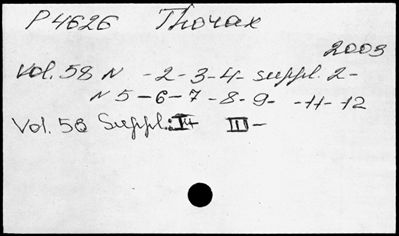 P4626 Thorax
2003
Vol. 58 N -2-3-4- suppl. 2-
N 5-6-7-8-9- -11-12
Vol. 58 Suppl: II III-